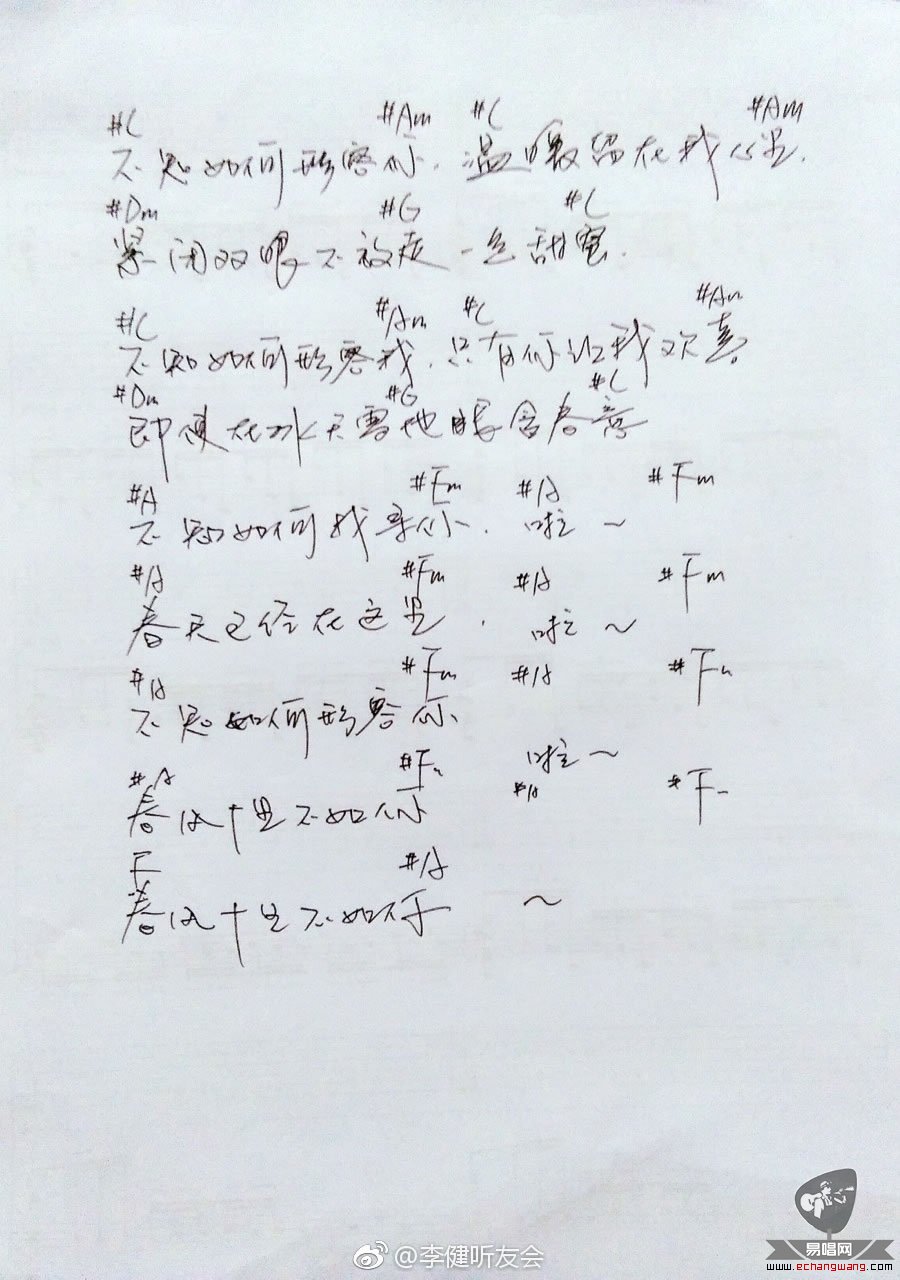 #C #Am #C #Am
不知如何形容你.温暖留在我心里.
#Dm #G #C
紧闭双眼不放走一丝甜蜜.
#C #Am #C #Am
不知如何形容我.只有你让我欢喜.
#Dm #G #C
即使在冰天雪地眼含春意
#A #Fm #A #Fm
不知如何找寻你. 啦~
#A #Fm #A #Fm
春天已经在这里. 啦~
#A #Fm #A #Fm
不知如何形容你
啦~
#A #Fm #A #Fm
春风十里不如你
F #A
春风十里不如你 ~
@李健听友会
易唱网
www.echangwang.com